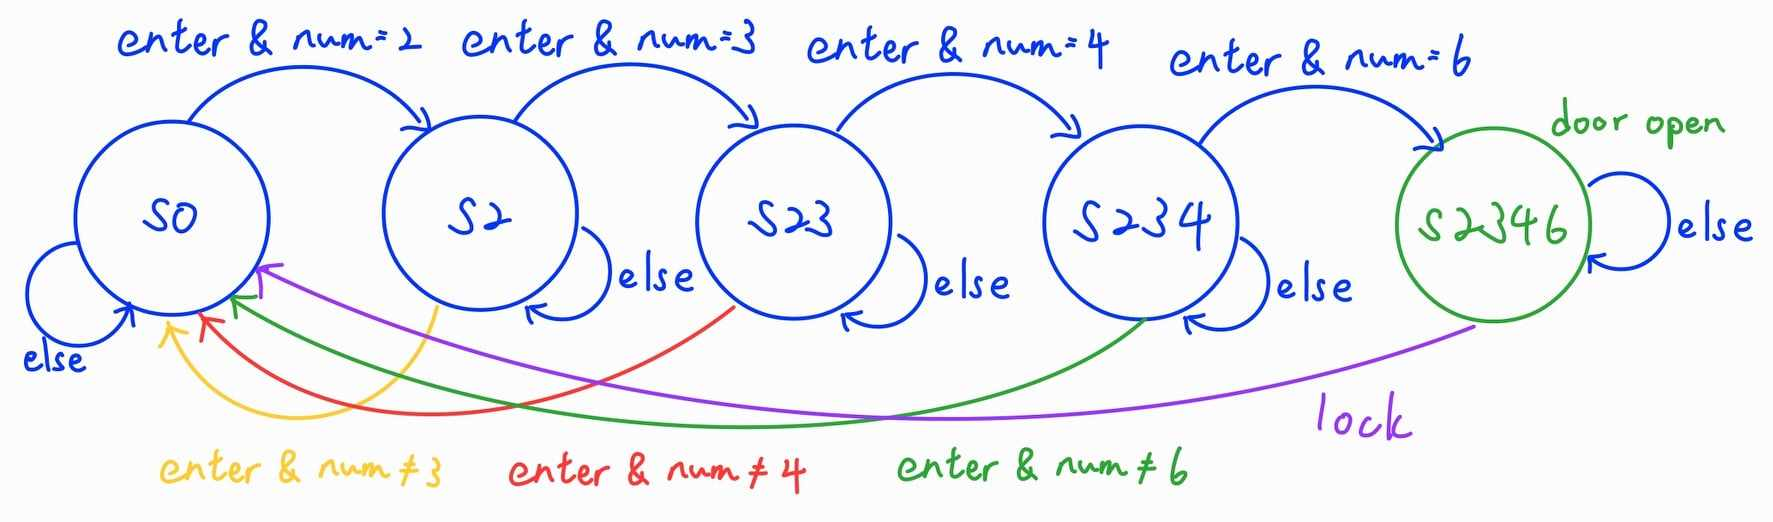 enter & num=2 enter & num=3 enter & num=4 enter & num=6
door open
S0 S2 S23 S234 S2346 else
else else else
else
lock
enter & num≠3 enter & num≠4 enter & num≠6